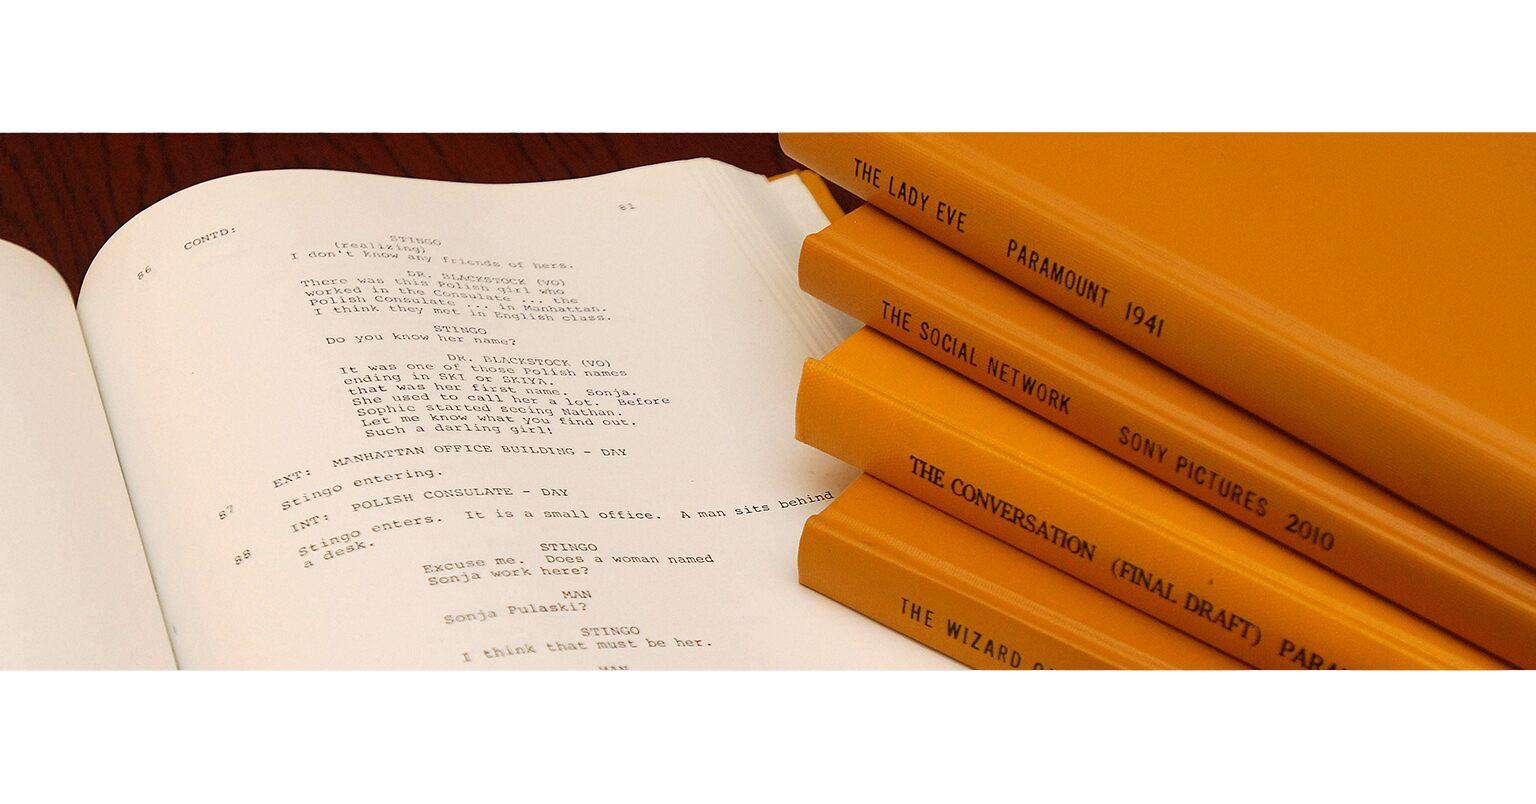 81
CONTD:
86
STINGO
(realizing)
I don't know any friends of hers.
DR. BLACKSTOCK (VO)
There was this Polish girl who
worked in the Consulate ... the
Polish Consulate ... in Manhattan.
I think they met in English class.
STINGO
Do you know her name?
DR. BLACKSTOCK (VO)
It was one of those Polish names
ending in SKI or SKIYA.
that was her first name. Sonja.
She used to call her a lot. Before
Sophie started seeing Nathan.
Let me know what you find out.
Such a darling girl!
EXT: MANHATTAN OFFICE BUILDING - DAY
87
Stingo entering.
INT: POLISH CONSULATE - DAY
88
Stingo enters. It is a small office. A man sits behind
a desk.
STINGO
Excuse me. Does a woman named
Sonja work here?
MAN
Sonja Pulaski?
STINGO
I think that must be her.
MAN
THE LADY EVE PARAMOUNT 1941
THE SOCIAL NETWORK SONY PICTURES 2010
THE CONVERSATION (FINAL DRAFT) PARA
THE WIZARD O